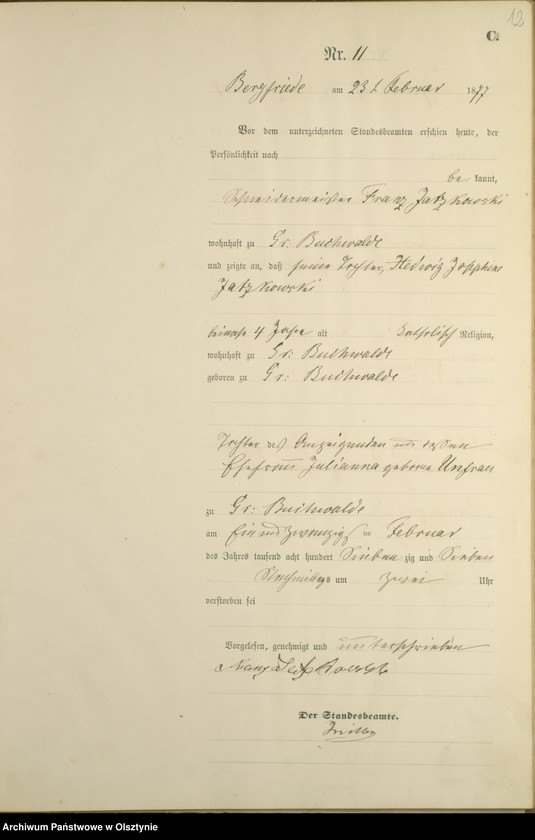 12
C.
Nr. 11
Bergfriede am 23 t Februar 1877
Vor dem unterzeichneten Standesbeamten erschien heute, der
Persönlichkeit nach
be kannt,
Schneidermeister Franz Jatzkowski
wohnhaft zu Gr. Buchwalde
und zeigte an, daß seine Tochter, Hedwig Josephine
Jatzkowski
beinahe 4 Jahre alt katholisch Religion,
wohnhaft zu Gr: Buchwalde
geboren zu Gr: Buchwalde
Tochter des Anzeigenden und dessen
Ehefrau Julianna geborne Unfrau
zu Gr: Buchwalde
am ein und zwanzigsten Februar
des Jahres tausend acht hundert Sieben zig und Sieben
Nachmittags um zwei Uhr
verstorben sei
Vorgelesen, genehmigt und unterschrieben
Der Standesbeamte.
Archiwum Państwowe w Olsztynie